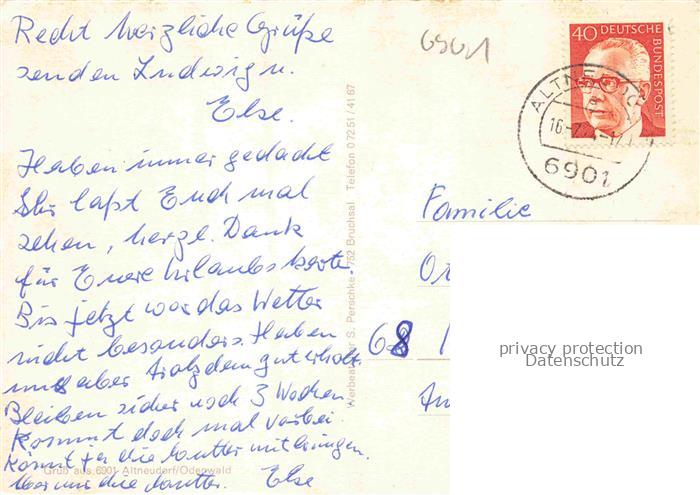 Recht herzliche Grüße
senden Ludwig u.
Else.
Haben immer gedacht
Ihr laßt Euch mal
sehen, herzl. Dank
für Eure Urlaubskarte
Bis jetzt war das Wetter
nicht besonders. Haben
uns aber trotzdem gut erholt
Bleiben sicher noch 3 Wochen.
Kommt doch mal vorbei.
Könnt ja die Mutter mitbringen.
die Mutter. Else
Gruß aus 6901 Altneudorf/Odenwald
Werbeatelier S. Perschke · 752 Bruchsal Telefon 0 72 51 / 41 67
6901
40 DEUTSCHE
BUNDESPOST
ALTNEUDORF
6901
Familie
68
privacy protection
Datenschutz